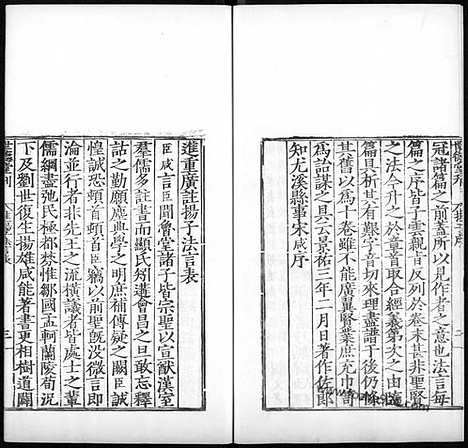 冠諸篇之前蓋所以見作者之意也法言每
篇之序皆子雲親旨反列於卷末甚非聖賢
之法今升之於章首取合經義第次之由隨
篇具析其有艱字音切來理盡諸于後仍條
其舊以十三卷爲定雖不能廣翼賢業庶充巾笥
爲詒謀之具云景祐三年二月日著作佐郎
知尤溪縣事宋咸序
進重廣註揚子法言表
臣咸言臣聞會堂諸子皆宗聖以宣猷漢室
羣儒多註書而顯氏矧遘會昌之旦敢忘釋
詁之勤願塵典學之明庶補傳疑之闕臣誠
惶誠恐頓首頓首臣竊以前聖既没微言即
淪並行者非先王之流橫議者皆處士之輩
儒綱盡弛民極都棼惟孟軻蘭陵荀況
下及劉世復生揚雄咸能著書更相樹道闢